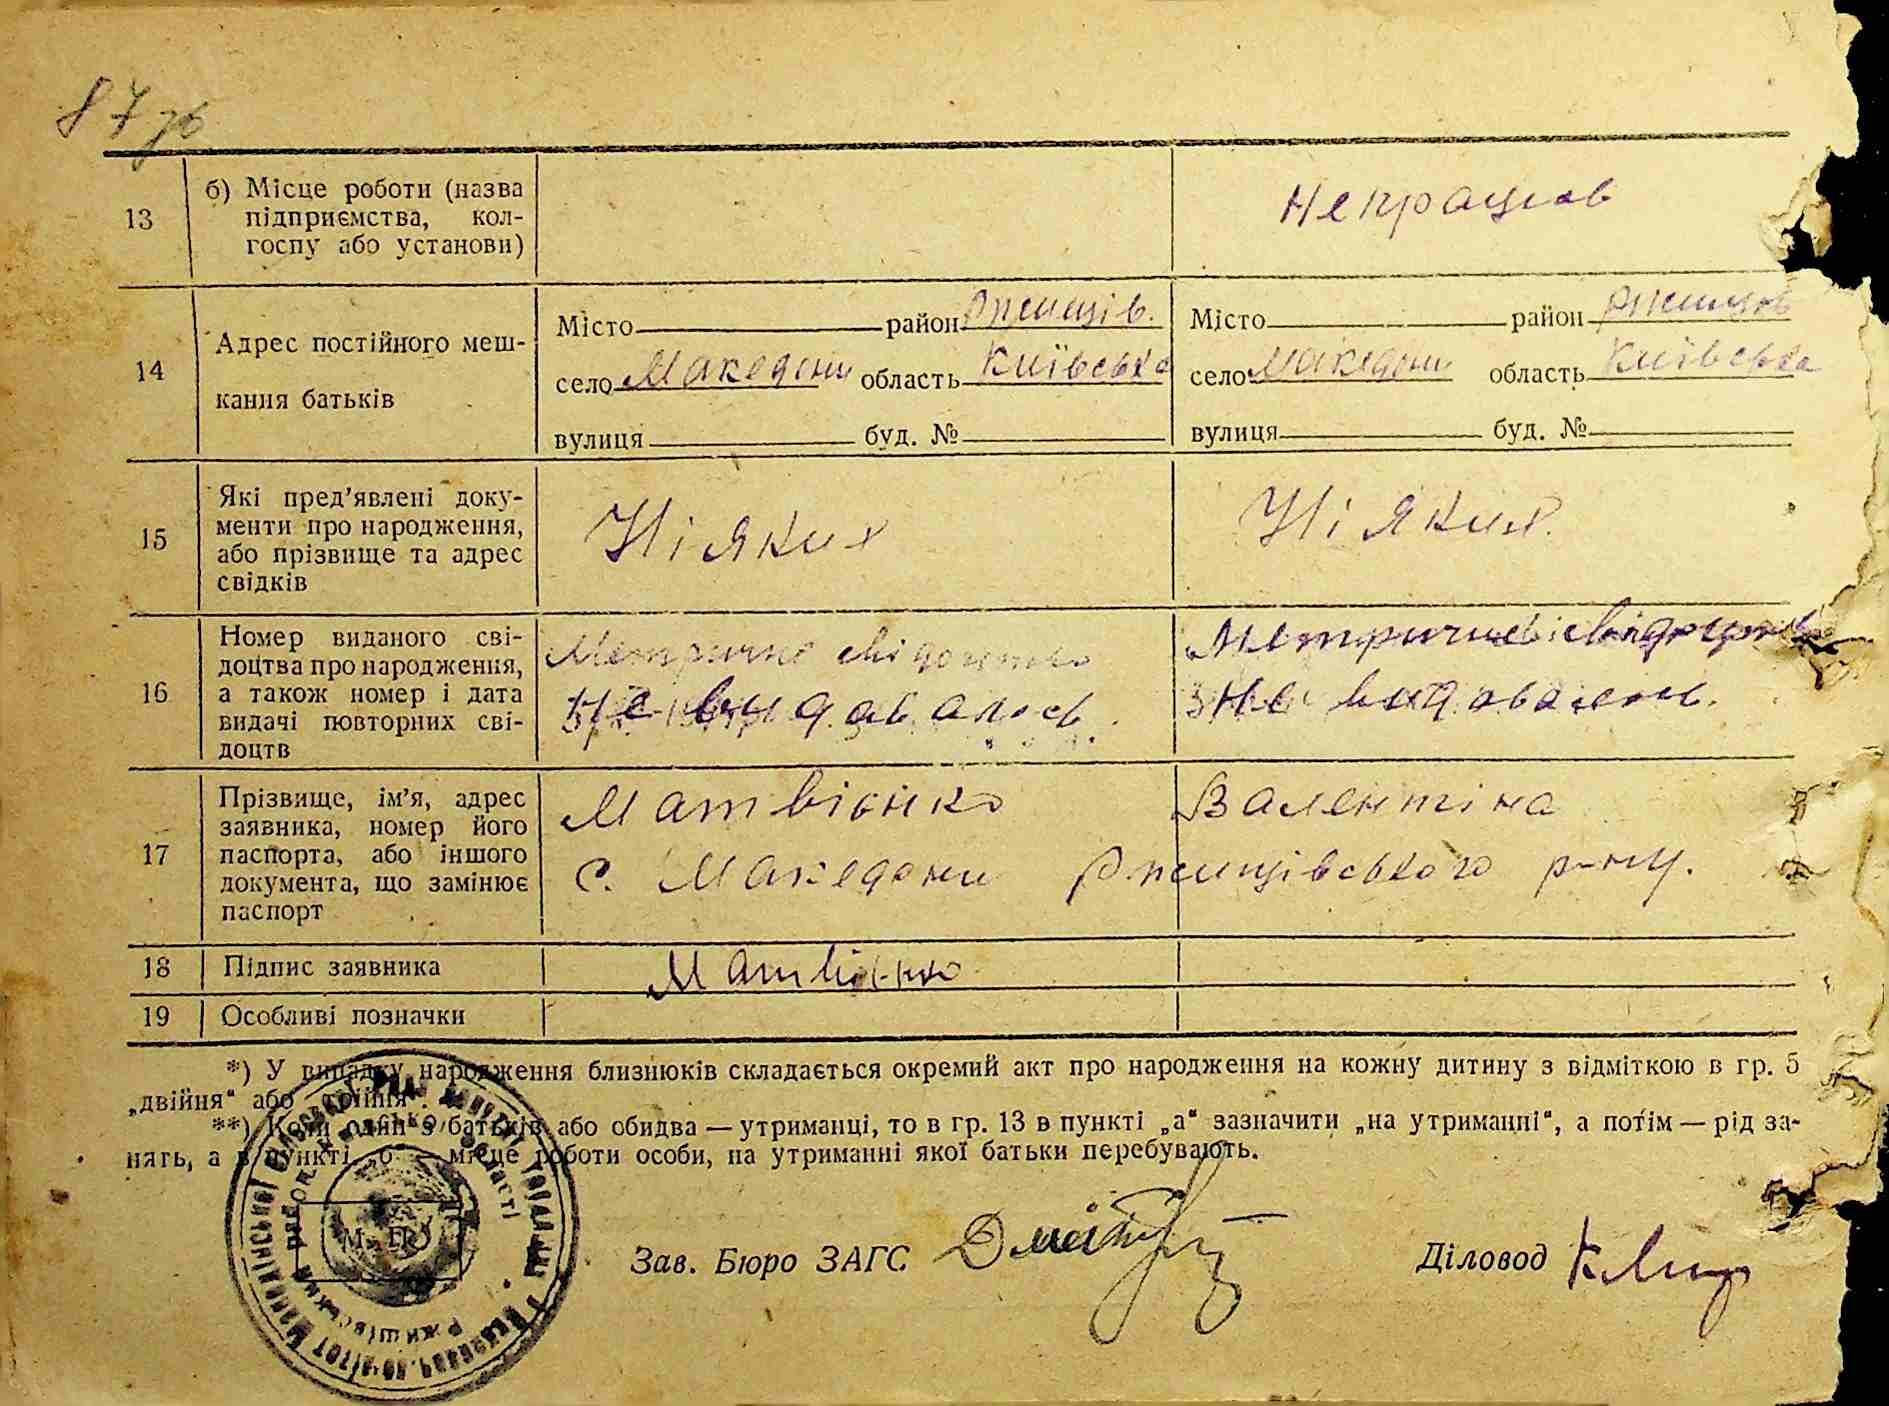 87 зв
13 б) Місце роботи (назва
підприємства, кол-
госпу або установи)
Непрацюв
14 Адрес постійного меш-
кання батьків
Місто район Ржищів. Місто район Ржищів
село Македони область Київська село Македони область Київська
вулиця буд. № вулиця буд. №
15 Які пред’явлені доку-
менти про народження,
або прізвище та адрес
свідків
Ніяких Ніяких.
16 Номер виданого сві-
доцтва про народження,
а також номер і дата
видачі повторних сві-
доцтв
Метричне свідоцтво Метричне свідоцтво
Не видавалось. Не видавалось.
17 Прізвище, ім’я, адрес
заявника, номер його
паспорта, або іншого
документа, що замінює
паспорт
Матвієнко Валентіна
с. Македони Ржищівського р-ну.
18 Підпис заявника Матвієнко
19 Особливі позначки
*) У випадку народження близнюків складається окремий акт про народження на кожну дитину з відміткою в гр. 5
„двійня“ або „трійня“.
**) Коли один з батьків або обидва — утриманці, то в гр. 13 в пункті „а“ зазначити „на утриманні“, а потім — рід за-
нять, а в пункті „б“ — місце роботи особи, на утриманні якої батьки перебувають.
Зав. Бюро ЗАГС Діловод